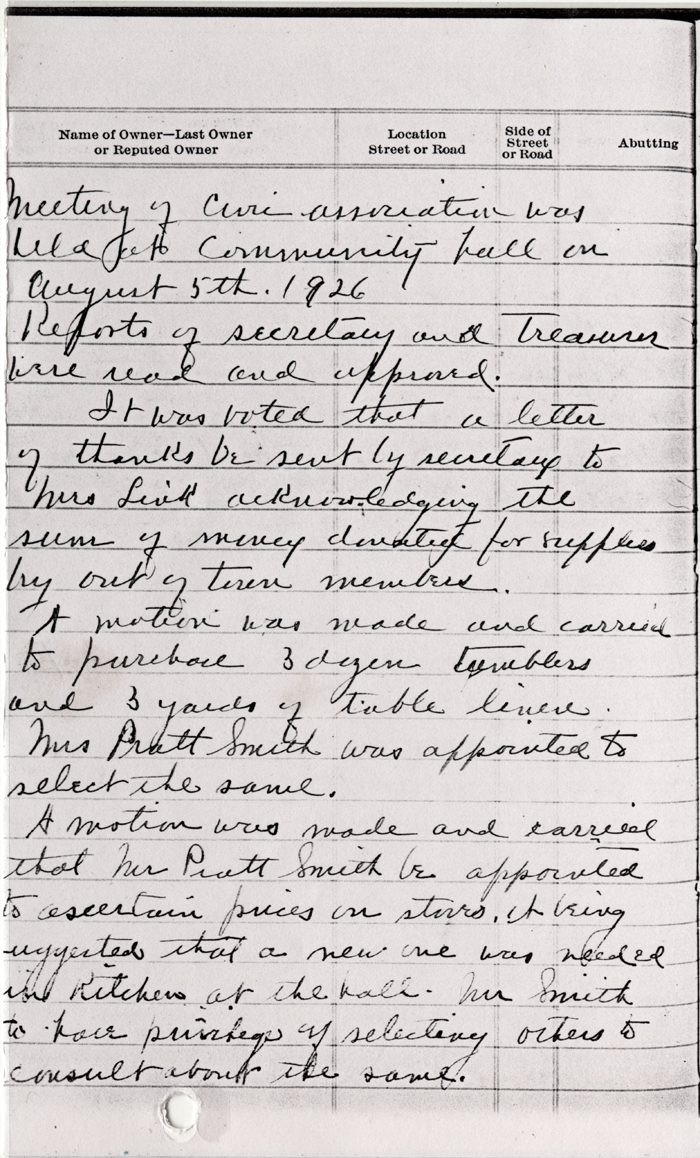 Name of Owner—Last Owner
or Reputed Owner
Location
Street or Road
Side of
Street
or Road
Abutting
Meeting of Civic association was
held at Community hall on
August 5th. 1926
Reports of secretary and Treasurer
were read and approved.
It was voted that a letter
of thanks be sent by secretary to
Mrs Link acknowledging the
sum of money donated for supplies
by out of town members.
A motion was made and carried
to purchase 3 dozen tumblers
and 3 yards of table linen.
Mrs Pratt Smith was appointed to
select the same.
A motion was made and carried
that Mr Pratt Smith be appointed
to ascertain prices on stoves, it being
uggested that a new one was needed
in Kitchen at the hall. Mr Smith
to have privilege of selecting others to
consult about the same.